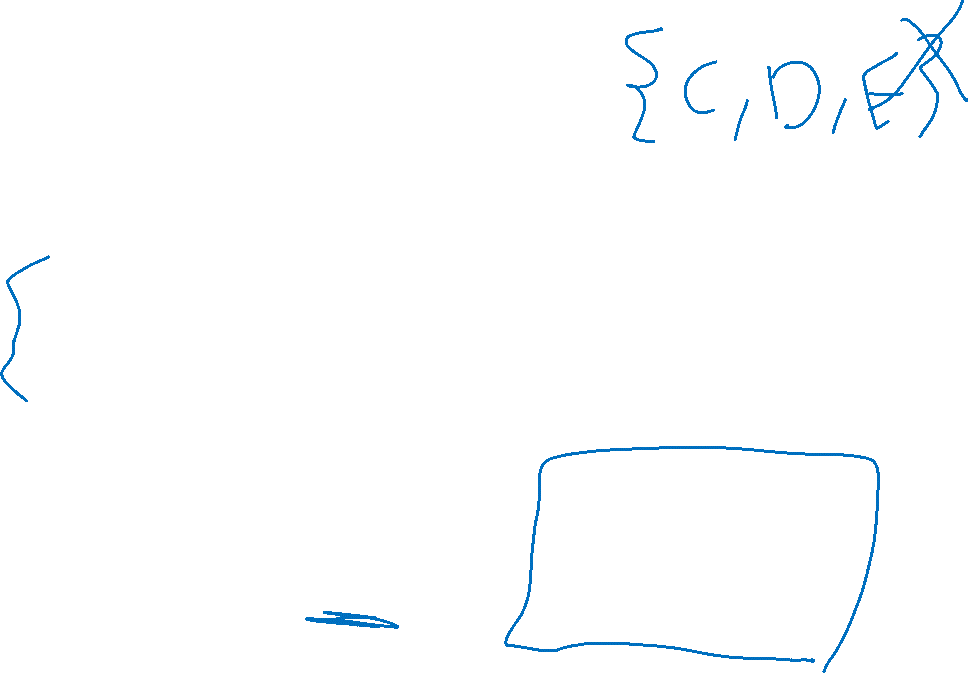 {C, D, E}
{